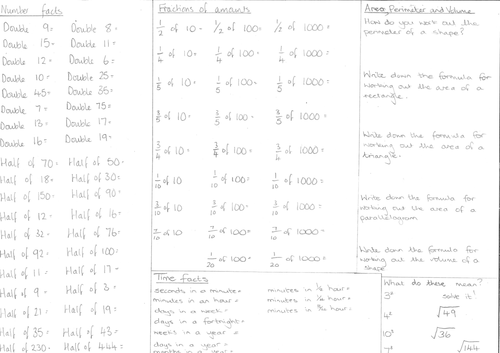 Number facts
Double 9= Double 8=
Double 15= Double 11=
Double 12= Double 6=
Double 10= Double 25=
Double 45= Double 35=
Double 7= Double 75=
Double 13= Double 17=
Double 16= Double 19=
Half of 70= Half of 50=
Half of 18= Half of 30=
Half of 150= Half of 90=
Half of 12= Half of 16=
Half of 32= Half of 76=
Half of 92= Half of 100=
Half of 11= Half of 17=
Half of 9= Half of 3=
Half of 21= Half of 19=
Half of 35= Half of 43=
Half of 230= Half of 444=
Fractions of amounts
1/2 of 10= 1/2 of 100= 1/2 of 1000=
1/4 of 10= 1/4 of 100= 1/4 of 1000=
1/5 of 10= 1/5 of 100= 1/5 of 1000=
3/5 of 10= 3/5 of 100= 3/5 of 1000=
3/4 of 10= 3/4 of 100= 3/4 of 1000=
1/10 of 10 1/10 of 100= 1/10 of 1000=
3/10 of 10 3/10 of 100= 3/10 of 1000=
7/10 of 10 7/10 of 100= 7/10 of 1000=
1/20 of 100= 1/20 of 1000=
Time facts
seconds in a minute= minutes in 1/2 hour=
minutes in an hour= minutes in 1/4 hour=
days in a week= minutes in 3/4 hour=
days in a fortnight=
weeks in a year=
days in a year=
months in a year=
Area, Perimeter and Volume
How do you work out the
perimeter of a shape?
Write down the formula for
working out the area of a
rectangle.
Write down the formula for
working out the area of a
triangle.
Write down the formula for
working out the area of a
parallelogram
Write down the formula for
working out the volume of a
shape
What do these mean?
solve it!
√49
√36
√144